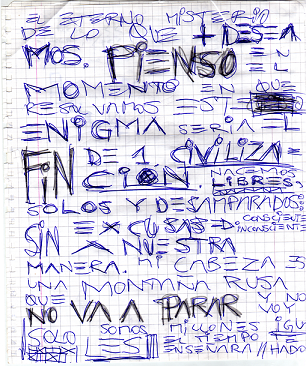 EL ETERNO MISTERIO
DE LO QUE + DESEA
MOS. PIENSO EL
MOMENTO EN QUE
RESOLVAMOS ESTE
ENIGMA SERIA EL
FIN DE 1 CIVILIZA-
CION. NACEMOS
LIBRES.
SOLOS Y DESAMPARADOS:
SIN EXCUSAS. D. CONSCIENTE
INCONSCIENTE
A NUESTRA
MANERA. MI CABEZA ES
UNA MONTAÑA RUSA
QUE Y NO
NO VA A PARAR VOY
SOLO SOMOS MILLONES IGU
LES EL TIEMPO TE
ENSEÑARA // HADO